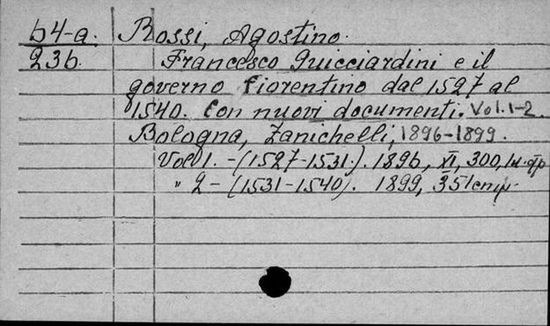 54-a. Rossi, Agostino.
23b. Francesco Guicciardini e il
governo fiorentino dal 1527 al
1540. Con nuovi documenti. Vol. 1-2.
Bologna, Zanichelli, 1896-1899.
Vol. 1. - (1527-1531). 1896, XI, 300,
" 2 - (1531-1540). 1899, 351